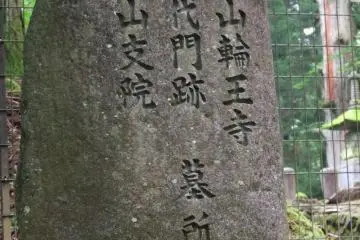 山輪王寺
代門跡 墓所
山支院